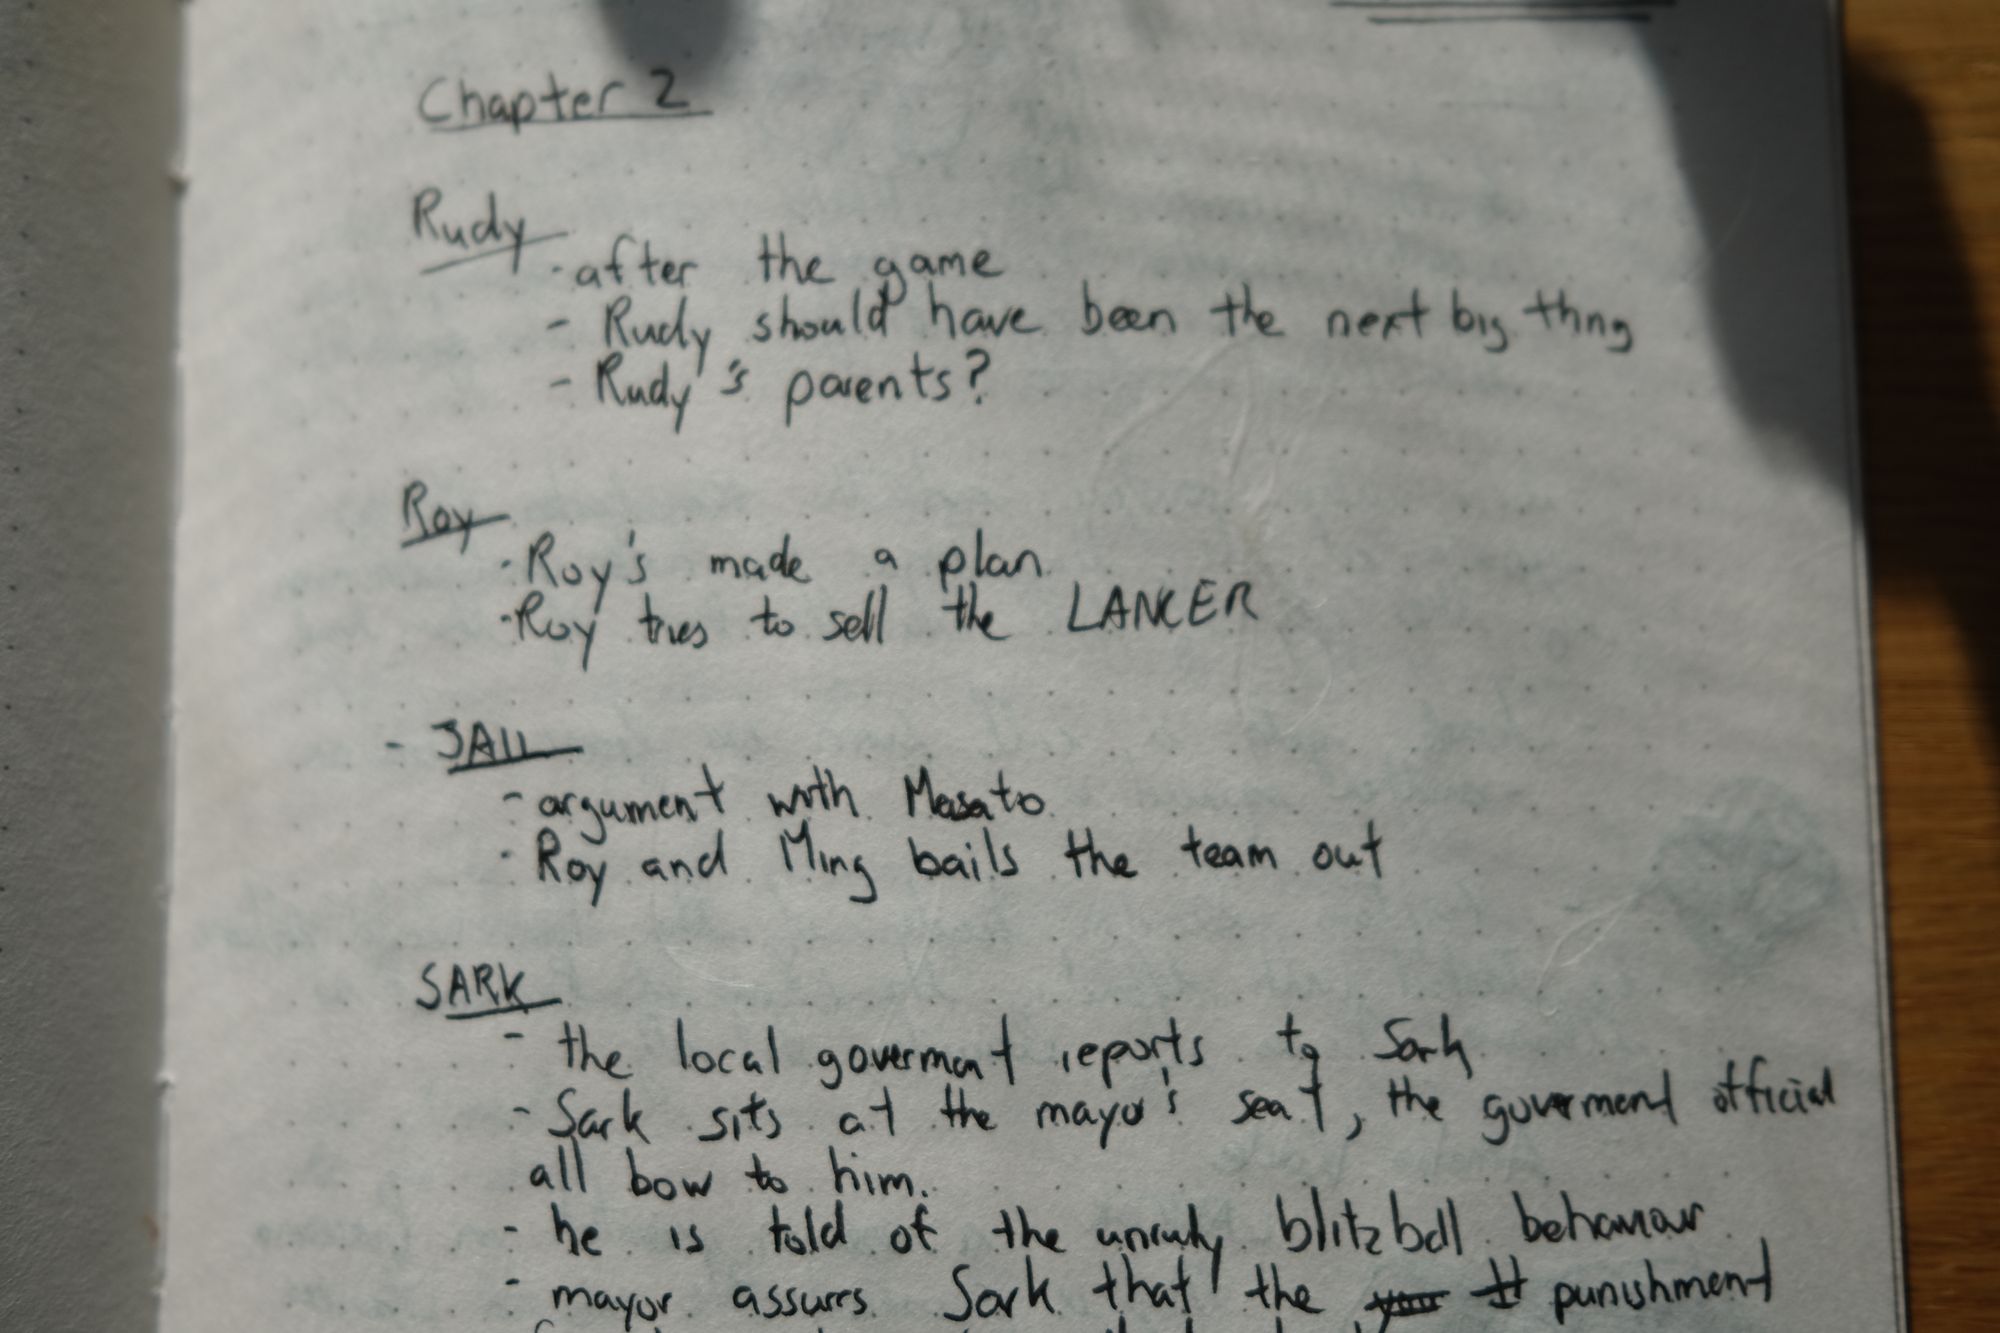 Chapter 2
Rudy
- after the game
- Rudy should have been the next big thng
- Rudy's parents?
Roy
- Roy's made a plan
- Roy tries to sell the LANCER
- JAIL
- argument with Masato
- Roy and Ming bails the team out
SARK
- the local goverment reports to Sark
- Sark sits at the mayor's seat, the goverment official
all bow to him.
- he is told of the unruly blitzball behaviour
- mayor assures Sark that the punishment